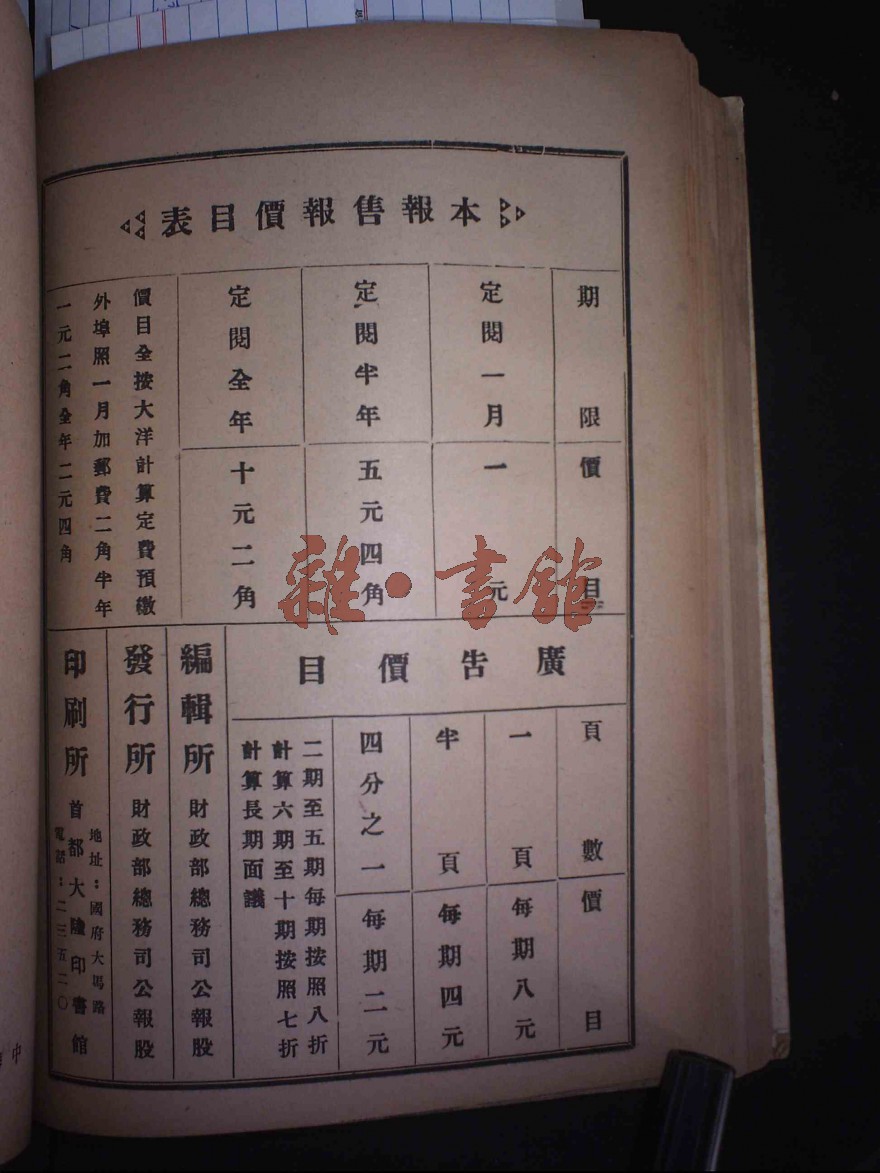 本報售報價目表
期限
價目
定閱一月
一元
定閱半年
五元四角
定閱全年
十元二角
價目全按大洋計算定費預繳
外埠照一月加郵費二角半年
一元二角全年二元四角
廣告價目
頁數
價目
一頁
每期八元
半頁
每期四元
四分之一
每期二元
二期至五期每期按照八折
計算六期至十期按照七折
計算長期面議
編輯所 財政部總務司公報股
發行所 財政部總務司公報股
印刷所 首都大陸印書館
地址：國府大馬路
電話：二三五二〇
雜·書館
中